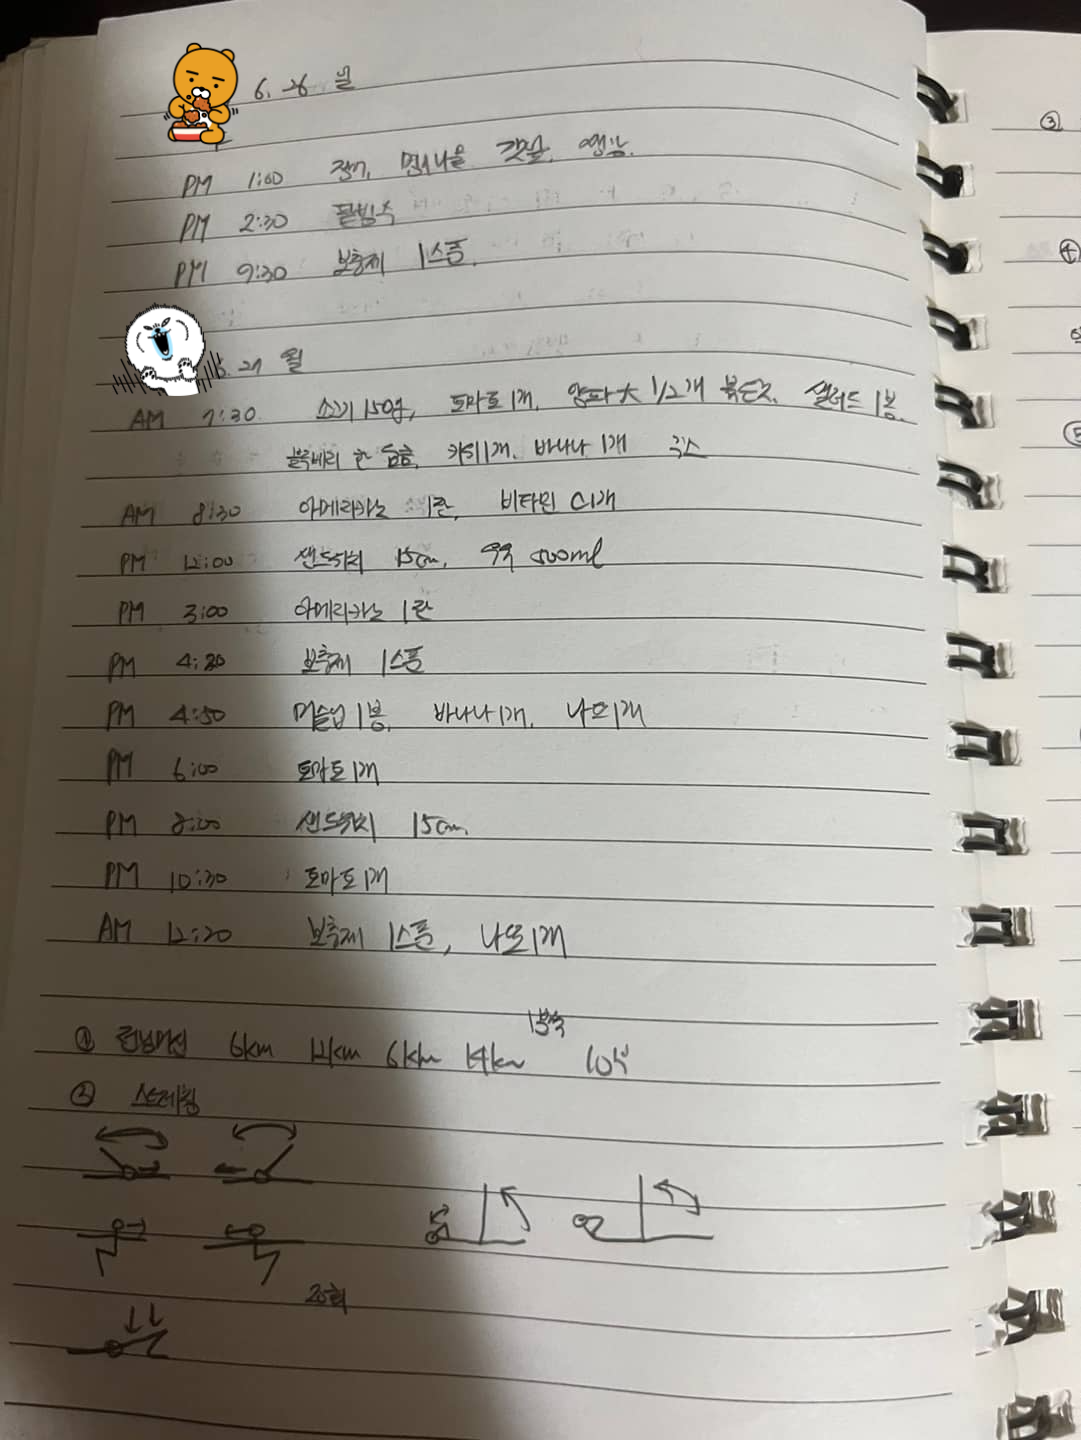 6. 26 일
PM 1:00
PM 2:30 팥빙수
PM 9:30 보충제 1스푼.
6. 27 월
AM 7:30 소고기 150g, 토마토 1개, 양파 大 1/2개 볶은것, 샐러드 1봉.
블루베리 한 움큼, 키위 1개, 바나나 1개 쥬스
AM 8:30 아메리카노 1잔, 비타민 C 1개
PM 12:00 샌드위치 15cm, 우유 500ml
PM 3:00 아메리카노 1잔
PM 4:20 보충제 1스푼
PM 4:50 머슬업 1봉, 바나나 1개, 낫또 1개
PM 6:00 토마토 1개
PM 8:00 샌드위치 15cm
PM 10:30 토마토 1개
AM 12:20 보충제 1스푼, 낫또 1개
① 런닝머신 6km 12km 6km 14km 10분
② 스트레칭
20회
③
④
⑤